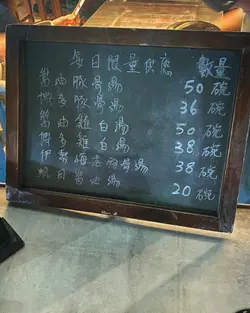 每日限量供應 數量
醬油豚骨湯 50碗
博多豚骨湯 36碗
醬油雞白湯 50碗
博多雞白湯 38碗
伊勢海老豚骨湯 38碗
帆司醬油湯 20碗